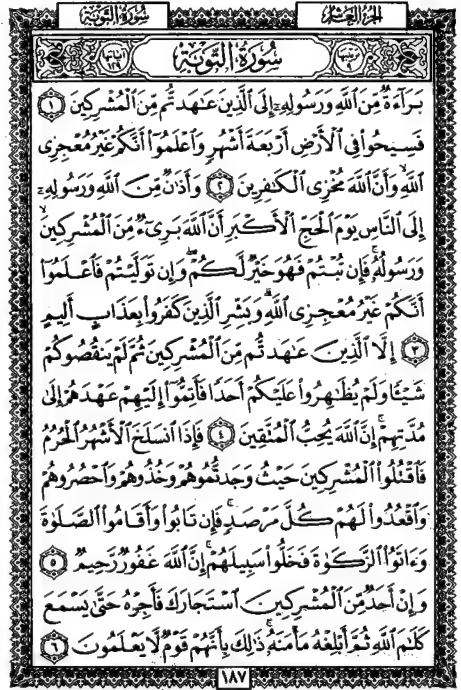 سُورَةُ التَّوْبَةِ الجُزْءُ العَاشِرُ
سُورَةُ التَّوْبَةِ
بَرَآءَةٌ مِّنَ ٱللَّهِ وَرَسُولِهِۦٓ إِلَى ٱلَّذِينَ عَٰهَدتُّم مِّنَ ٱلْمُشْرِكِينَ ١
فَسِيحُوا۟ فِى ٱلْأَرْضِ أَرْبَعَةَ أَشْهُرٍ وَٱعْلَمُوٓا۟ أَنَّكُمْ غَيْرُ مُعْجِزِى
ٱللَّهِ وَأَنَّ ٱللَّهَ مُخْزِى ٱلْكَٰفِرِينَ ٢ وَأَذَٰنٌ مِّنَ ٱللَّهِ وَرَسُولِهِۦٓ
إِلَى ٱلنَّاسِ يَوْمَ ٱلْحَجِّ ٱلْأَكْبَرِ أَنَّ ٱللَّهَ بَرِىٓءٌ مِّنَ ٱلْمُشْرِكِينَ
وَرَسُولُهُۥ فَإِن تُبْتُمْ فَهُوَ خَيْرٌ لَّكُمْ وَإِن تَوَلَّيْتُمْ فَٱعْلَمُوٓا۟
أَنَّكُمْ غَيْرُ مُعْجِزِى ٱللَّهِ وَبَشِّرِ ٱلَّذِينَ كَفَرُوا۟ بِعَذَابٍ أَلِيمٍ
٣ إِلَّا ٱلَّذِينَ عَٰهَدتُّم مِّنَ ٱلْمُشْرِكِينَ ثُمَّ لَمْ يَنقُصُوكُمْ
شَيْـًٔا وَلَمْ يُظَٰهِرُوا۟ عَلَيْكُمْ أَحَدًا فَأَتِمُّوٓا۟ إِلَيْهِمْ عَهْدَهُمْ إِلَىٰ
مُدَّتِهِمْ إِنَّ ٱللَّهَ يُحِبُّ ٱلْمُتَّقِينَ ٤ فَإِذَا ٱنسَلَخَ ٱلْأَشْهُرُ ٱلْحُرُمُ
فَٱقْتُلُوا۟ ٱلْمُشْرِكِينَ حَيْثُ وَجَدتُّمُوهُمْ وَخُذُوهُمْ وَٱحْصُرُوهُمْ
وَٱقْعُدُوا۟ لَهُمْ كُلَّ مَرْصَدٍ فَإِن تَابُوا۟ وَأَقَامُوا۟ ٱلصَّلَوٰةَ
وَءَاتَوُا۟ ٱلزَّكَوٰةَ فَخَلُّوا۟ سَبِيلَهُمْ إِنَّ ٱللَّهَ غَفُورٌ رَّحِيمٌ ٥
وَإِنْ أَحَدٌ مِّنَ ٱلْمُشْرِكِينَ ٱسْتَجَارَكَ فَأَجِرْهُ حَتَّىٰ يَسْمَعَ
كَلَٰمَ ٱللَّهِ ثُمَّ أَبْلِغْهُ مَأْمَنَهُۥ ذَٰلِكَ بِأَنَّهُمْ قَوْمٌ لَّا يَعْلَمُونَ ٦
١٨٧